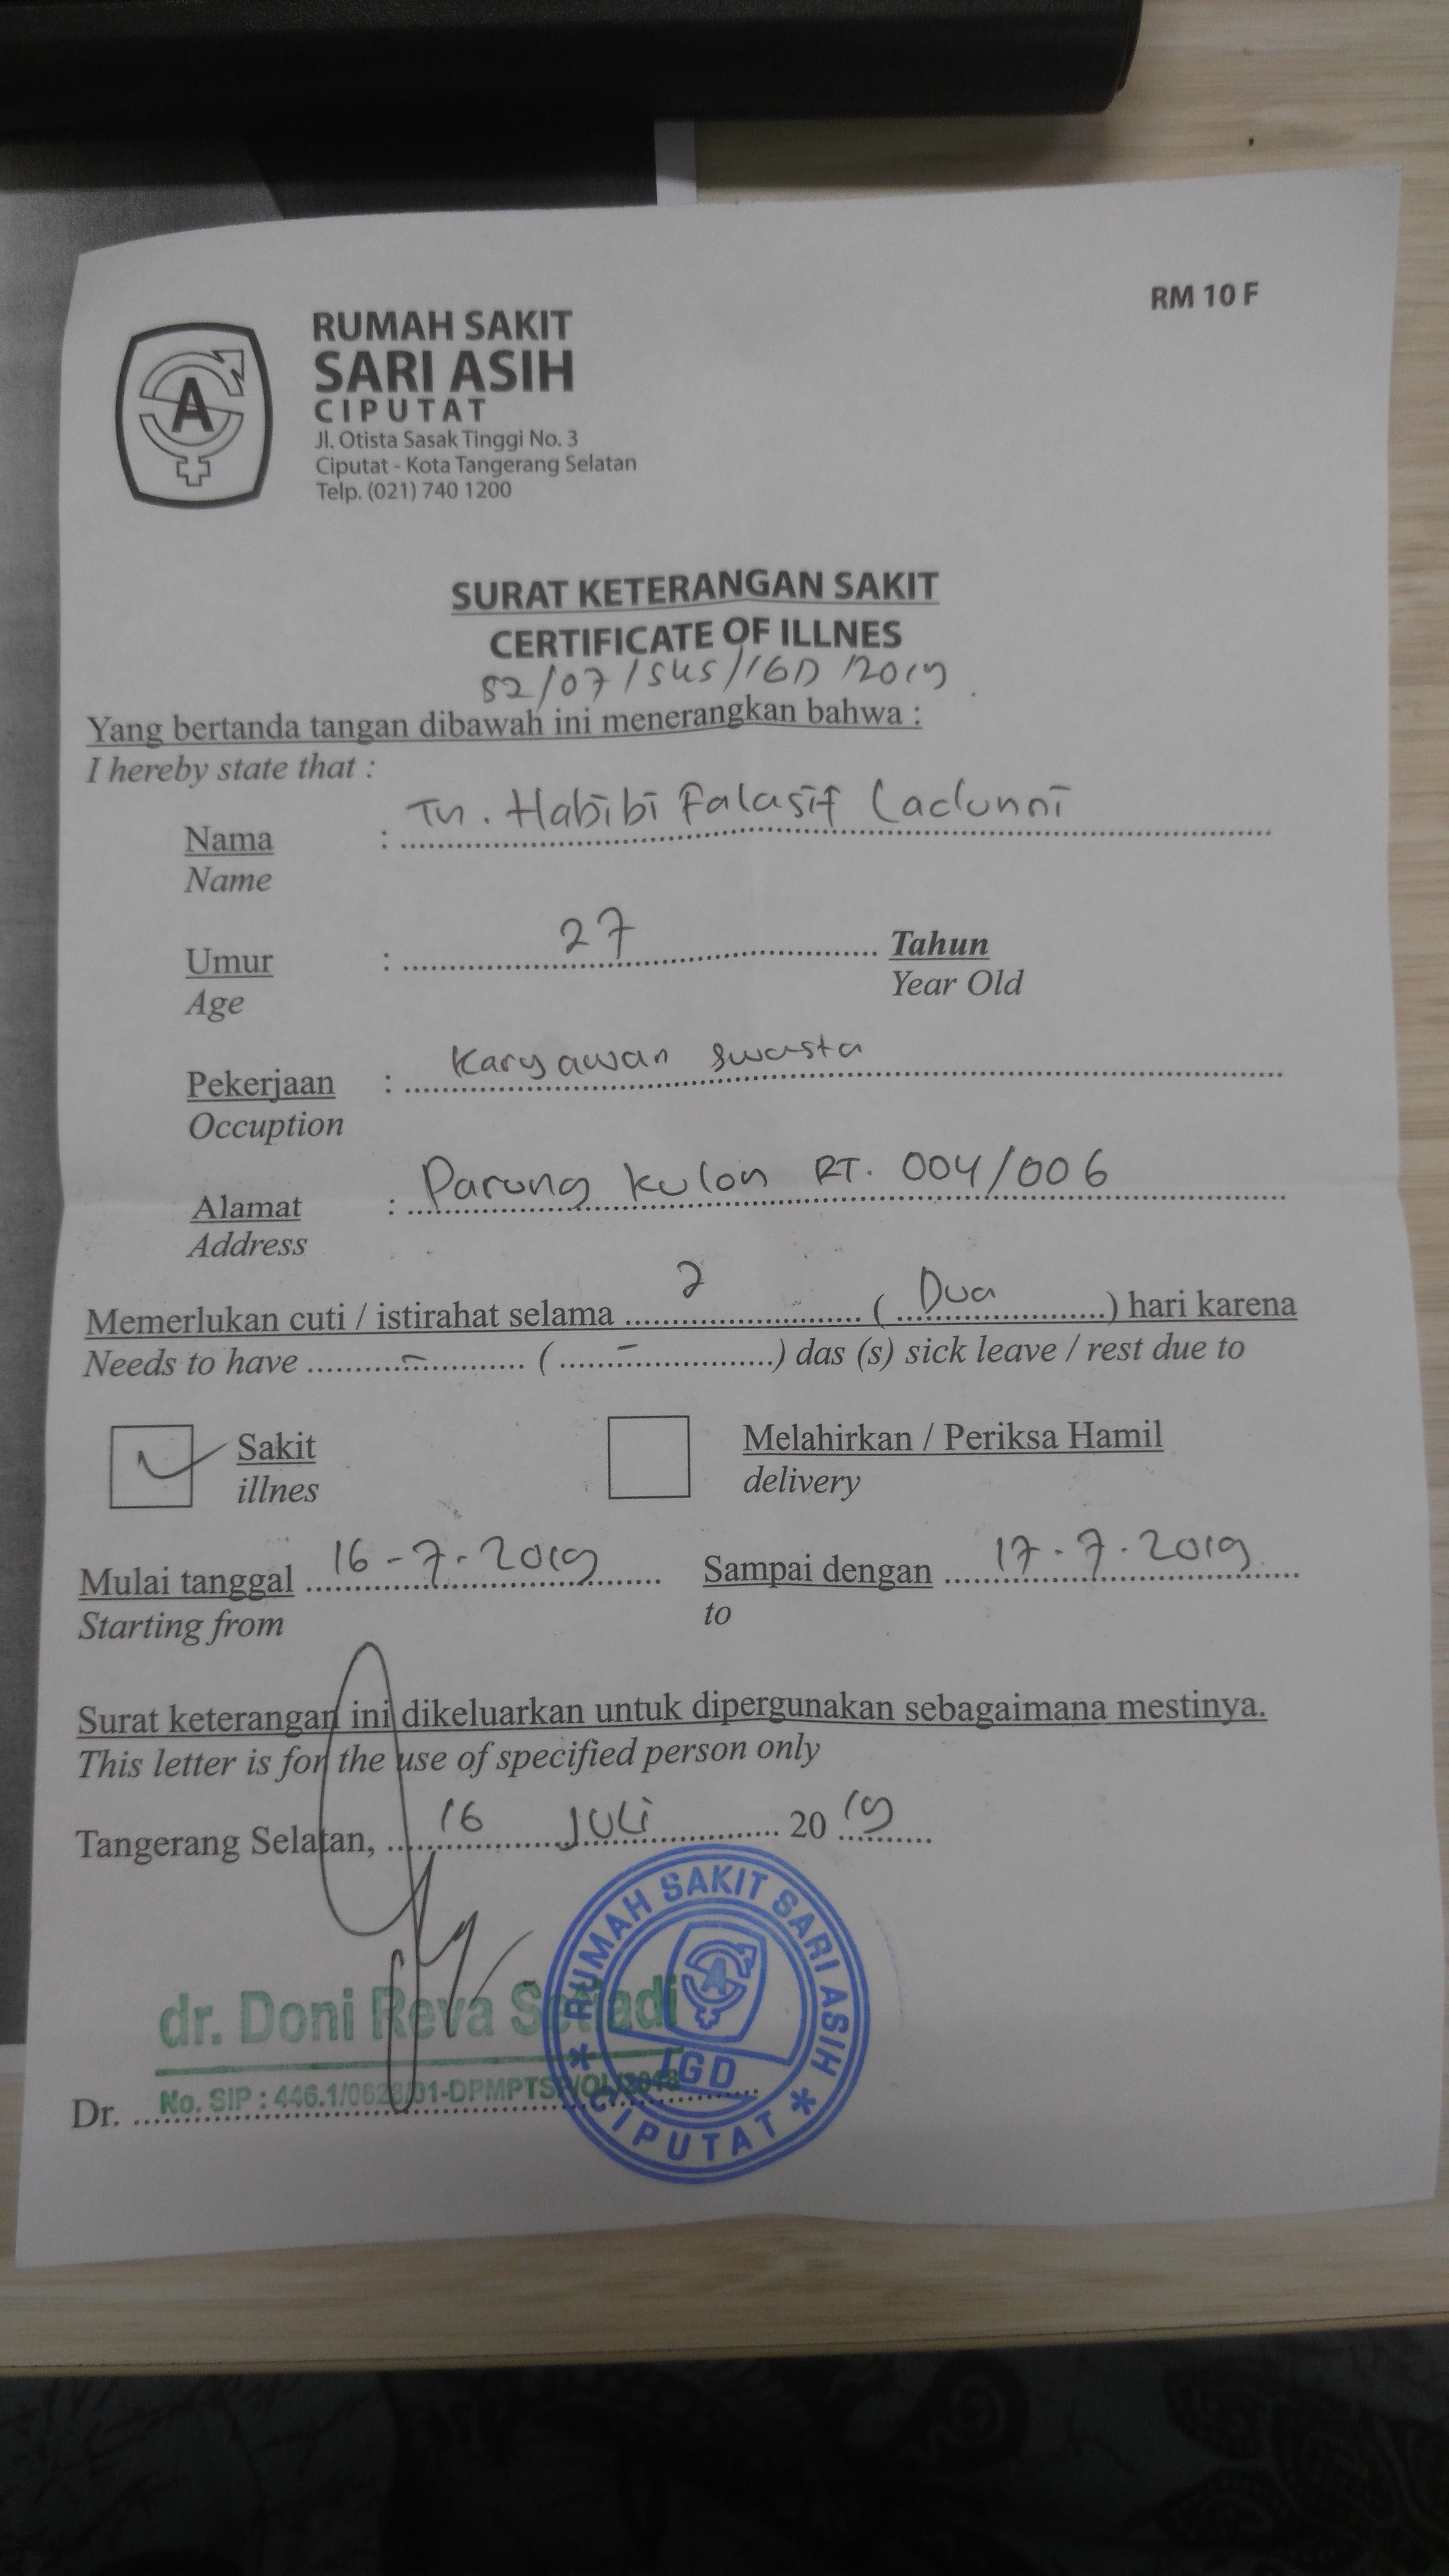 RM 10 F
RUMAH SAKIT
SARI ASIH
CIPUTAT
Jl. Otista Sasak Tinggi No. 3
Ciputat - Kota Tangerang Selatan
Telp. (021) 740 1200
A
SURAT KETERANGAN SAKIT
CERTIFICATE OF ILLNES
82/07/SKS/IGD/2019
Yang bertanda tangan dibawah ini menerangkan bahwa :
I hereby state that :
Nama : Tn. Habibi Falasif Ladunni
Name
Umur : 27 Tahun
Age Year Old
Pekerjaan : Karyawan swasta
Occuption
Alamat : Parung kulon RT. 004/006
Address
Memerlukan cuti / istirahat selama 2 ( Dua ) hari karena
Needs to have - ( - ) das (s) sick leave / rest due to
Sakit Melahirkan / Periksa Hamil
illnes delivery
Mulai tanggal 16-7-2019 Sampai dengan 17-7-2019
Starting from to
Surat keterangan ini dikeluarkan untuk dipergunakan sebagaimana mestinya.
This letter is for the use of specified person only
Tangerang Selatan, 16 Juli 2019
dr. Doni Reva Setiadi
No. SIP : 446.1/0628/01-DPMPTSP/OL/2018
Dr.
RUMAH SAKIT SARI ASIH
A
IGD
* CIPUTAT *